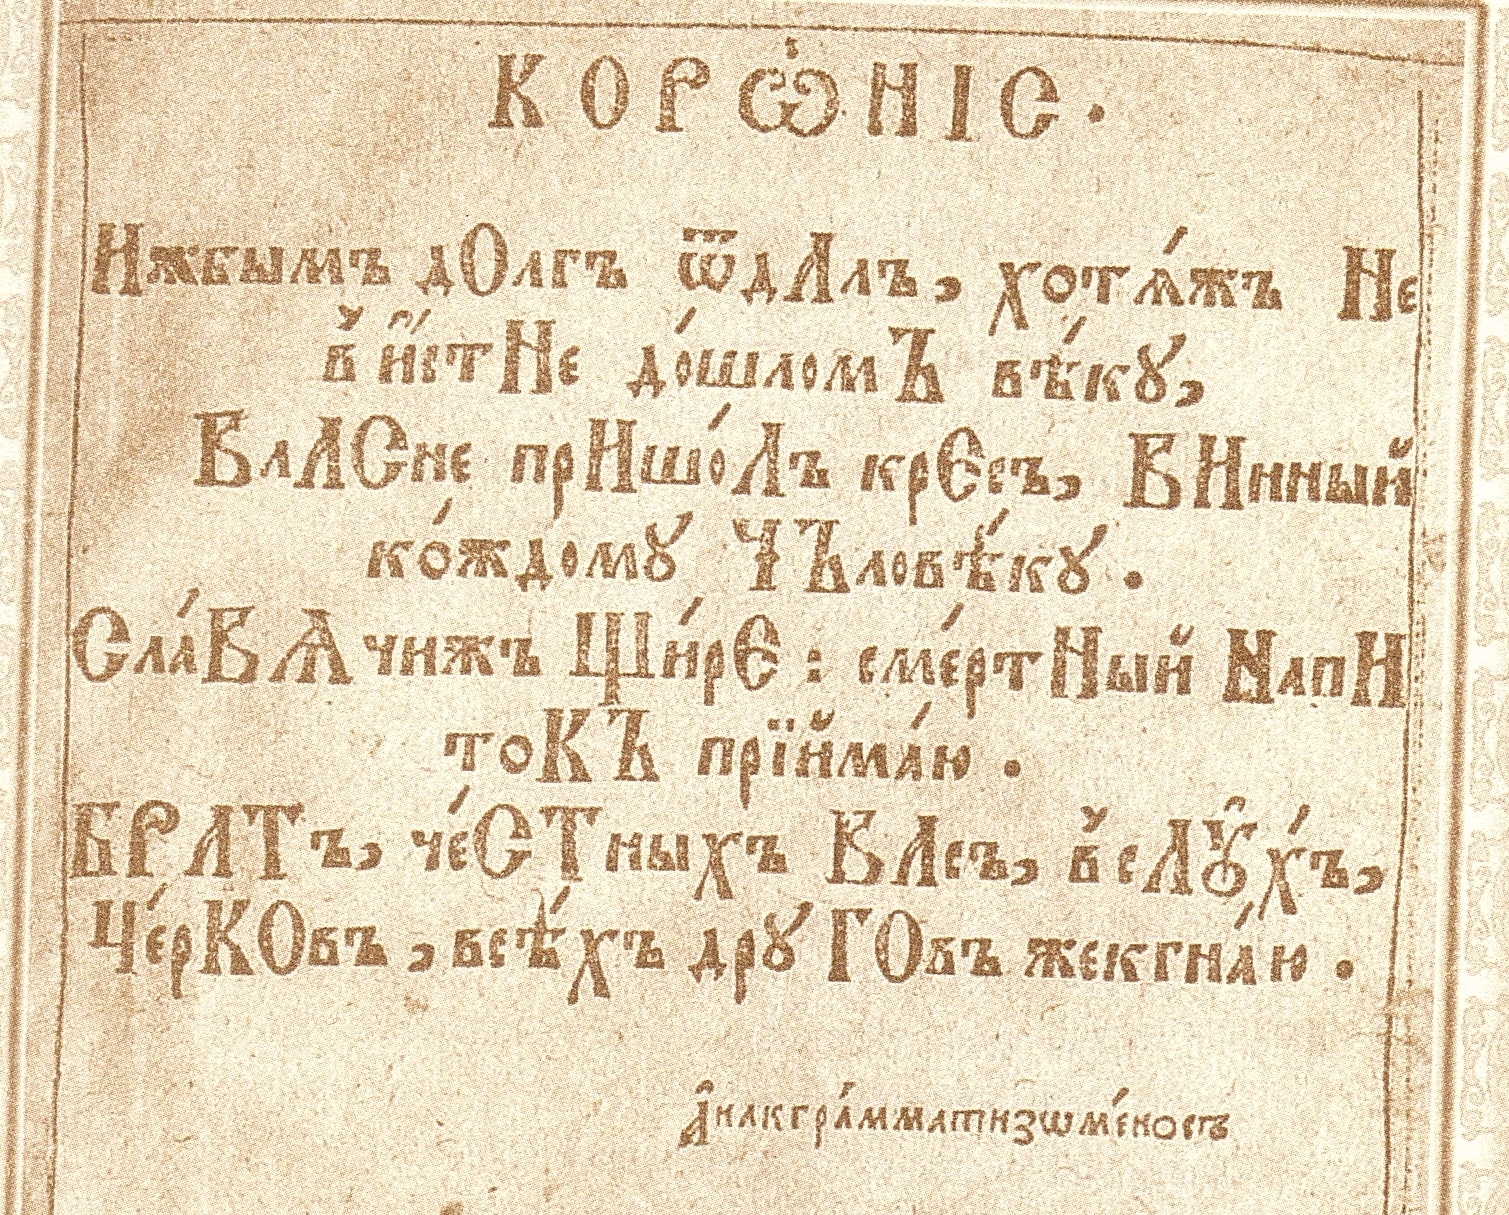 КОРѠ́НІС.
Ижбымъ дОлгъ ѿдАлъ, хотѧ́жъ Не
в̾ и҆стНе до́шломЪ вѣ́кꙋ,
ВлАСне прИшо́Лъ крЄсъ, ВИнный
ко́ждомꙋ ЧЪловѣ́кꙋ.
Сла́ВѦчижъ Щи́рЄ : сме́ртНый НапИ
токЪ прїйма́ю.
БРАТъ, че́СТныхъ ВАсъ, в̾сЛꙋ́хъ,
Че́рКОвъ, всѣ́хъ дрꙋГОвъ жекгна́ю.
А҆накгра́мматизѡме́носъ